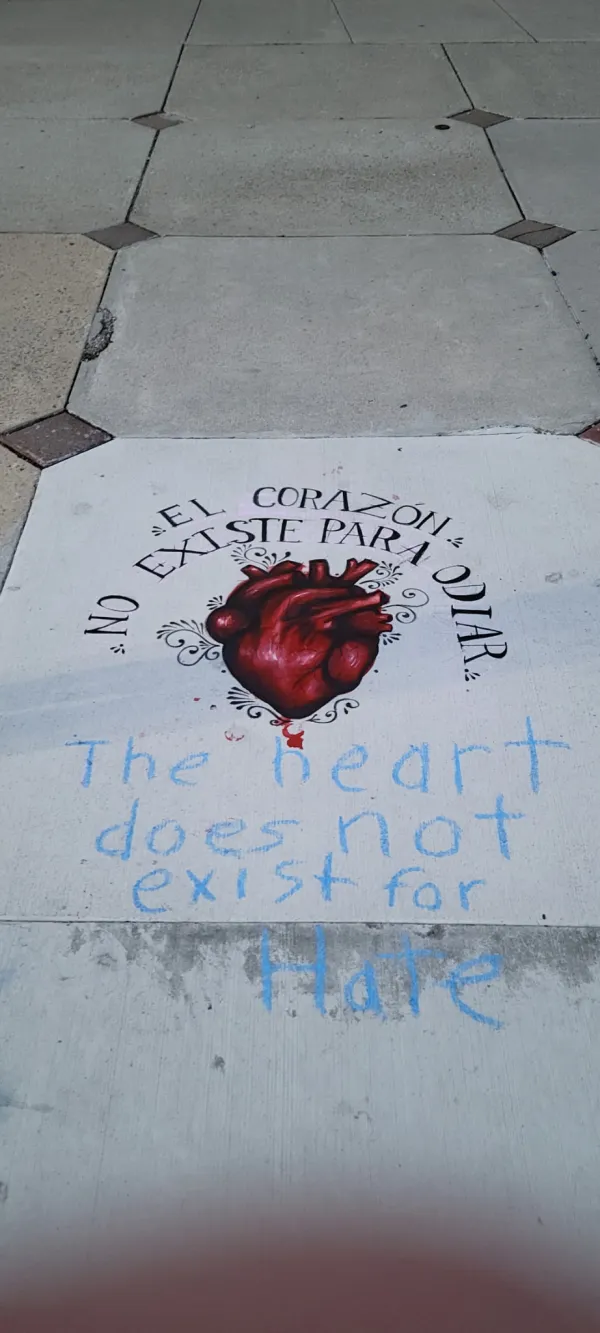 EL CORAZÓN
NO EXISTE PARA ODIAR
The heart
does not
exist for
Hate